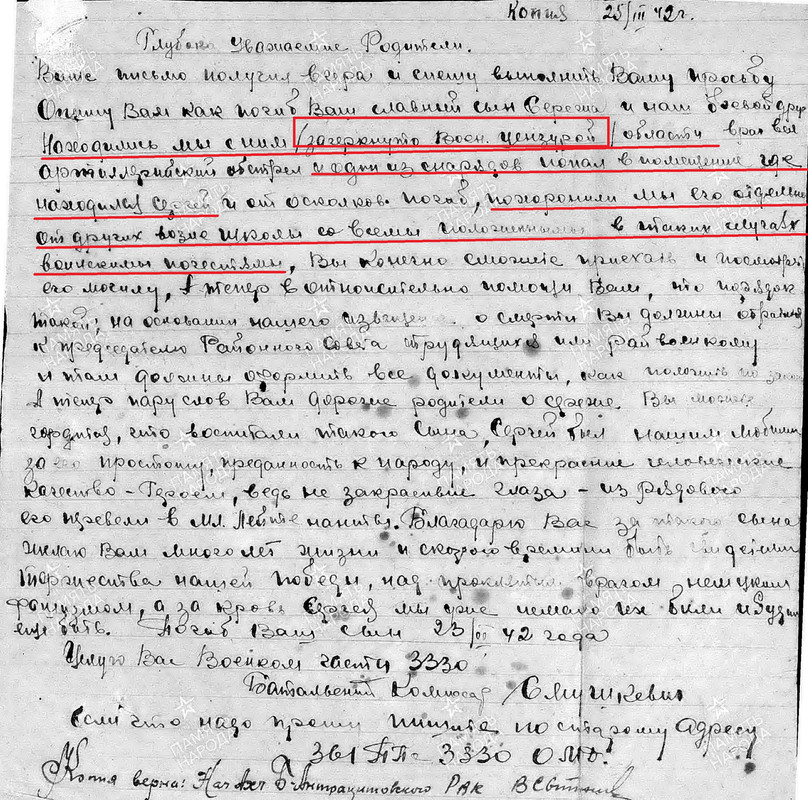 Копия 25/III 42 г.
Глубоко Уважаемые Родители.
Ваше письмо получил вчера и спешу выполнить Вашу просьбу
Опишу Вам как погиб Ваш славный сын Сережа и наш боевой друг
Находились мы с ним /зачеркнуто Воен. цензурой/ области враг вел
артиллерийский обстрел и один из снарядов попал в помещение где
находился Сергей и от осколков погиб, похоронили мы его отдельно
от других возле школы со всеми положенными в таких случаях
воинскими почестями, Вы конечно сможите приехать и посмотреть
его могилу, А тепер в относительно помощи Вам, то порядок
такой; на основании нашего извещения о смерти Вы должны обратится
к председателю Районного Совета трудящихся или Райвоенкому
и там должны оформить все документы, как положить по закону
А тепер пару слов Вам дорогие родители о Сереже. Вы можете
гордится, что воспитали такого Сына, Сергей был нашим любимым
за его простоту, преданность к народу, и прекрасные человеческие
качество - Героем, ведь не закрасивые глаза - из рядового
его перевели в Мл. Лейтенанты. Благодарю Вас за такого сына
желаю Вам много лет жизни и скорого времени быть свидетями
Торжества нашей победы, над проклятым врагом немецким
фашизмом, а за кровь Сергея мы уже немало их били и будем
еще бить. Погиб Ваш сын 23/II 42 года
Целую Вас Военком части 3330
Батальеный Комисар /Смушкевич
Если что надо прошу пишите по старому адресу
361 ППс 3330 ОМБ.
Копия верна: Нач Б-Антрацитовского РВК
ПАМЯТЬ НАРОДА